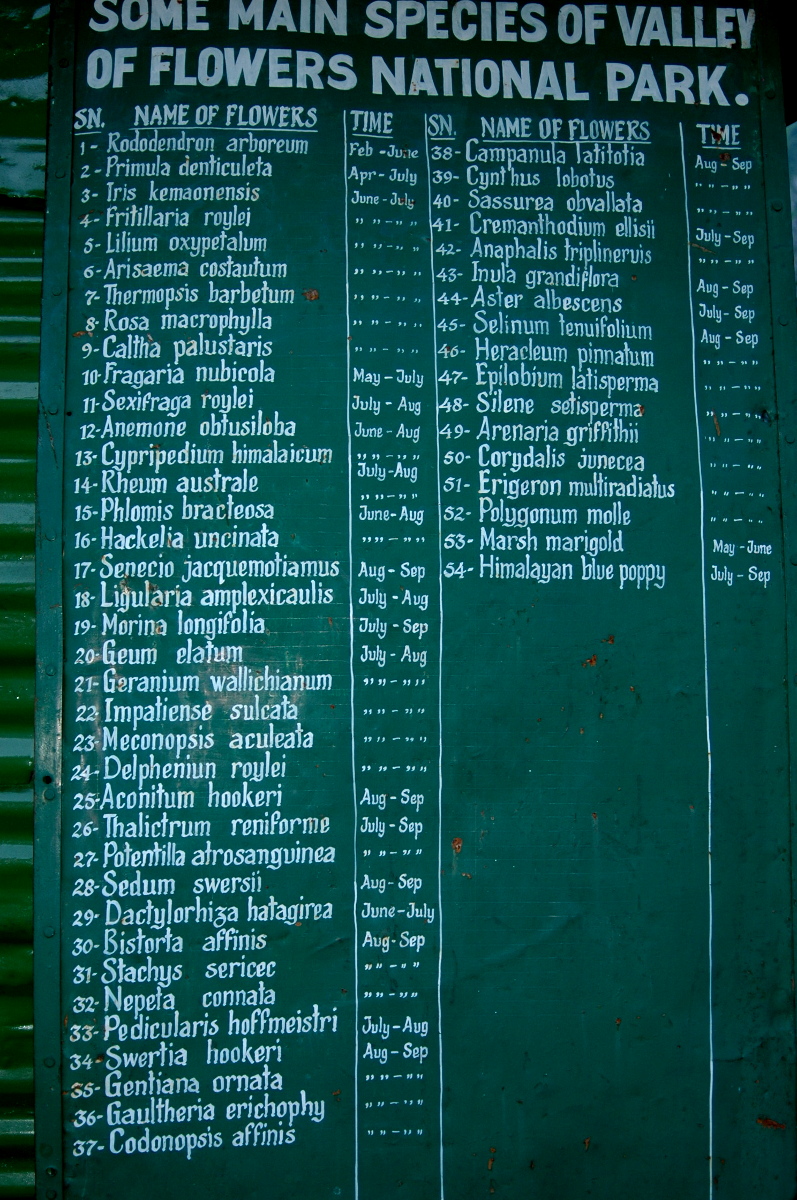 SOME MAIN SPECIES OF VALLEY
OF FLOWERS NATIONAL PARK.
SN. NAME OF FLOWERS TIME
1- Rododendron arboreum Feb - June
2- Primula denticuleta Apr - July
3- Iris kemaonensis June - July
4- Fritillaria roylei ,, ,, - ,, ,,
5- Lilium oxypetalum ,, ,, - ,, ,,
6- Arisaema costautum ,, ,, - ,, ,,
7- Thermopsis barbetum ,, ,, - ,, ,,
8- Rosa macrophylla ,, ,, - ,, ,,
9- Caltha palustaris ,, ,, - ,, ,,
10- Fragaria nubicola May - July
11- Sexifraga roylei July - Aug
12- Anemone obtusiloba June - Aug
13- Cypripedium himalaicum ,, ,, - ,, ,,
14- Rheum australe July - Aug
,, ,, - ,, ,,
15- Phlomis bracteosa June - Aug
16- Hackelia uncinata ,, ,, - ,, ,,
17- Senecio jacquemotiamus Aug - Sep
18- Ligularia amplexicaulis July - Aug
19- Morina longifolia July - Sep
20- Geum elatum July - Aug
21- Geranium wallichianum ,, ,, - ,, ,,
22- Impatiense sulcata ,, ,, - ,, ,,
23- Meconopsis aculeata ,, ,, - ,, ,,
24- Delpheniun roylei ,, ,, - ,, ,,
25- Aconitum hookeri Aug - Sep
26- Thalictrum reniforme July - Sep
27- Potentilla atrosanguinea ,, ,, - ,, ,,
28- Sedum swersii Aug - Sep
29- Dactylorhiza hatagirea June - July
30- Bistorta affinis Aug - Sep
31- Stachys sericec ,, ,, - ,, ,,
32- Nepeta connata ,, ,, - ,, ,,
33- Pedicularis hoffmeistri July - Aug
34- Swertia hookeri Aug - Sep
35- Gentiana ornata ,, ,, - ,, ,,
36- Gaultheria erichophy ,, ,, - ,, ,,
37- Codonopsis affinis ,, ,, - ,, ,,
SN. NAME OF FLOWERS TIME
38- Campanula latitotia Aug - Sep
39- Cynthus lobotus ,, ,, - ,, ,,
40- Sassurea obvallata ,, ,, - ,, ,,
41- Cremanthodium ellisii July - Sep
42- Anaphalis triplinervis ,, ,, - ,, ,,
43- Inula grandiflora Aug - Sep
44- Aster albescens July - Sep
45- Selinum tenuifolium Aug - Sep
46- Heracleum pinnatum ,, ,, - ,, ,,
47- Epilobium latisperma ,, ,, - ,, ,,
48- Silene setisperma ,, ,, - ,, ,,
49- Arenaria griffithii ,, ,, - ,, ,,
50- Corydalis junecea ,, ,, - ,, ,,
51- Erigeron multiradiatus ,, ,, - ,, ,,
52- Polygonum molle ,, ,, - ,, ,,
53- Marsh marigold May - June
54- Himalayan blue poppy July - Sep